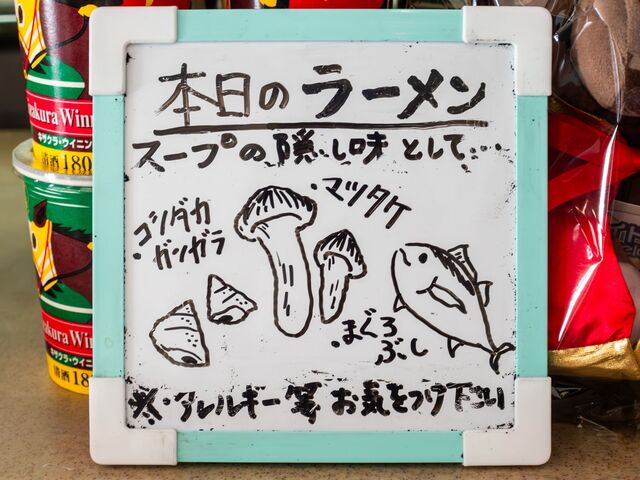 本日のラーメン
スープの隠し味として…
・マツタケ
ゴシダカ
・ガンガラ
・まぐろ
ぶし
※・アレルギー等お気をつけ下さい
akura Winn
キザクラ・ウイニン
清酒180
akura Win
キザクラ・ウイニン
清酒18